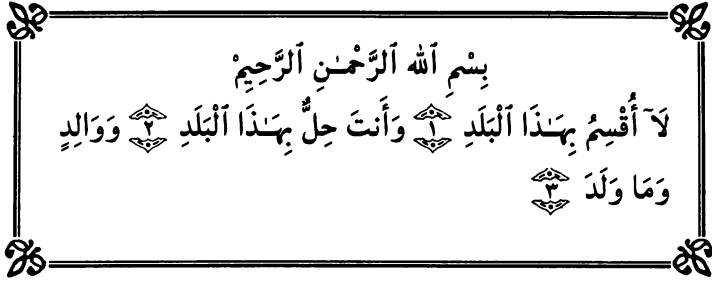 بِسْمِ ٱللَّهِ ٱلرَّحْمَـٰنِ ٱلرَّحِيمِ
لَآ أُقْسِمُ بِهَـٰذَا ٱلْبَلَدِ ١ وَأَنتَ حِلٌّۢ بِهَـٰذَا ٱلْبَلَدِ ٢ وَوَالِدٍ
وَمَا وَلَدَ ٣